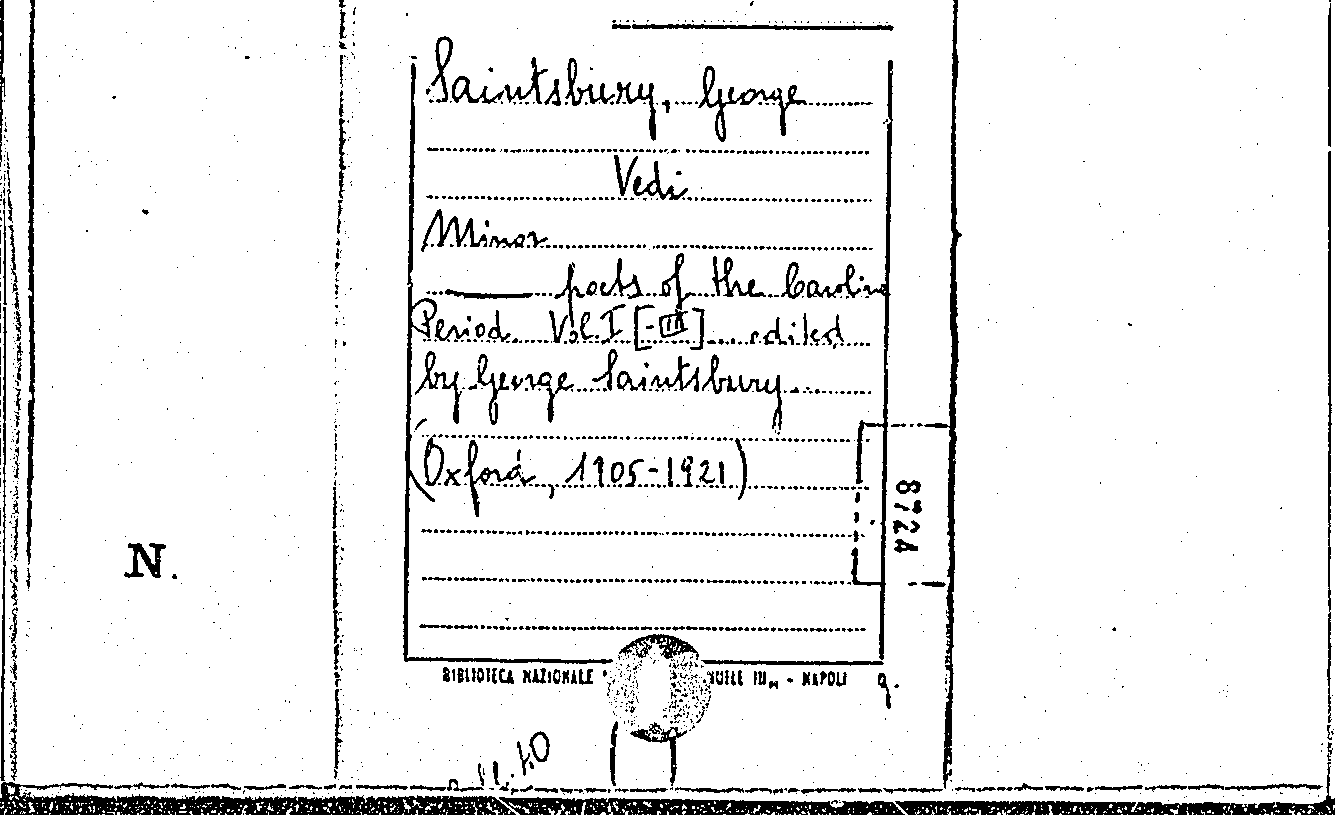 Saintsbury, George
Vedi
Minor
——— poets of the Caroline
Period. Vol. I [-III] ... edited
by George Saintsbury...
(Oxford, 1905-1921)
8724
N.
BIBLIOTECA NAZIONALE - NAPOLI